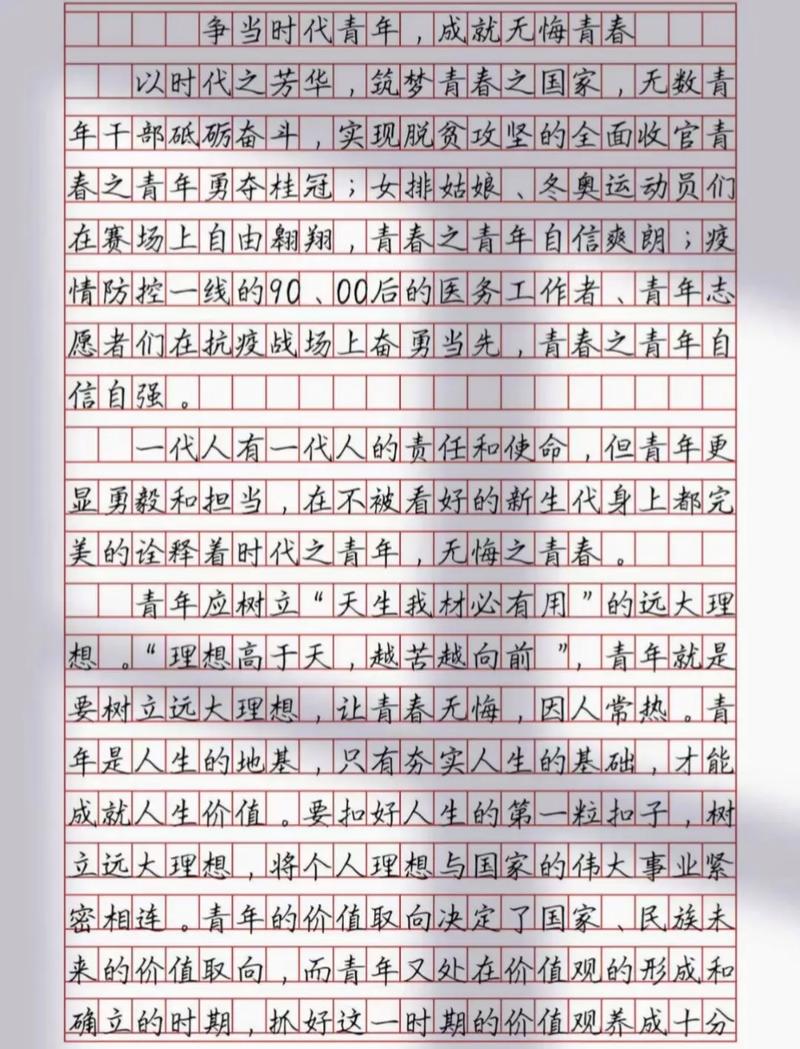 争当时代青年，成就无悔青春
以时代之芳华，筑梦青春之国家，无数青
年干部砥砺奋斗，实现脱贫攻坚的全面收官青
春之青年勇夺桂冠；女排姑娘、冬奥运动员们
在赛场上自由翱翔，青春之青年自信爽朗；疫
情防控一线的90、00后的医务工作者、青年志
愿者们在抗疫战场上奋勇当先，青春之青年自
信自强。
一代人有一代人的责任和使命，但青年更
显勇毅和担当，在不被看好的新生代身上都完
美的诠释着时代之青年，无悔之青春。
青年应树立“天生我材必有用”的远大理
想。“理想高于天，越苦越向前”，青年就是
要树立远大理想，让青春无悔，因人常热。青
年是人生的地基，只有夯实人生的基础，才能
成就人生价值。要扣好人生的第一粒扣子，树
立远大理想，将个人理想与国家的伟大事业紧
密相连。青年的价值取向决定了国家、民族未
来的价值取向，而青年又处在价值观的形成和
确立的时期，抓好这一时期的价值观养成十分